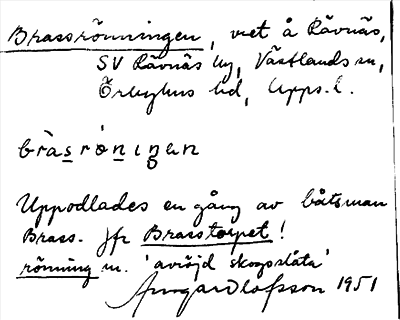 Brassrönningen, vret å Rävnäs,
SV Rävnäs by, Västlands sn,
Örbyhus hd, Upps. l.
bràsröniŋen
Uppodlades en gång av båtsman
Brass. Jfr Brasstorpet!
rönning m. 'avröjd skogsslåta'
Olofsson 1951